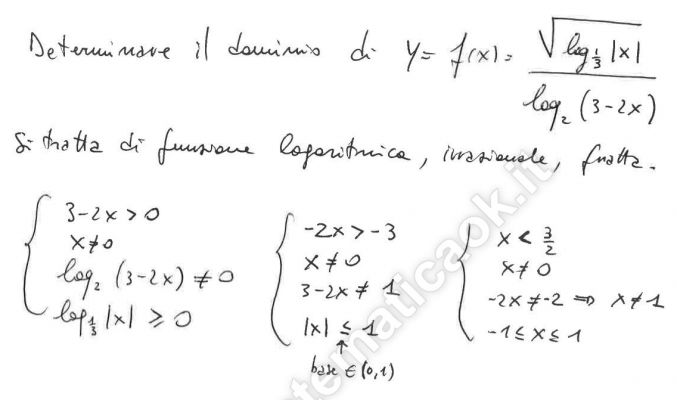 Determinare il dominio di y = f(x) = √(log_{1/3} |x|) / log₂ (3-2x)
Si tratta di funzione logaritmica, irrazionale, fratta.
{ 3-2x > 0
x ≠ 0
log₂ (3-2x) ≠ 0
log_{1/3} |x| ≥ 0
{ -2x > -3
x ≠ 0
3-2x ≠ 1
|x| ≤ 1
↑
base ∈ (0,1)
{ x < 3/2
x ≠ 0
-2x ≠ -2 ⇒ x ≠ 1
-1 ≤ x ≤ 1
stematicaok.it